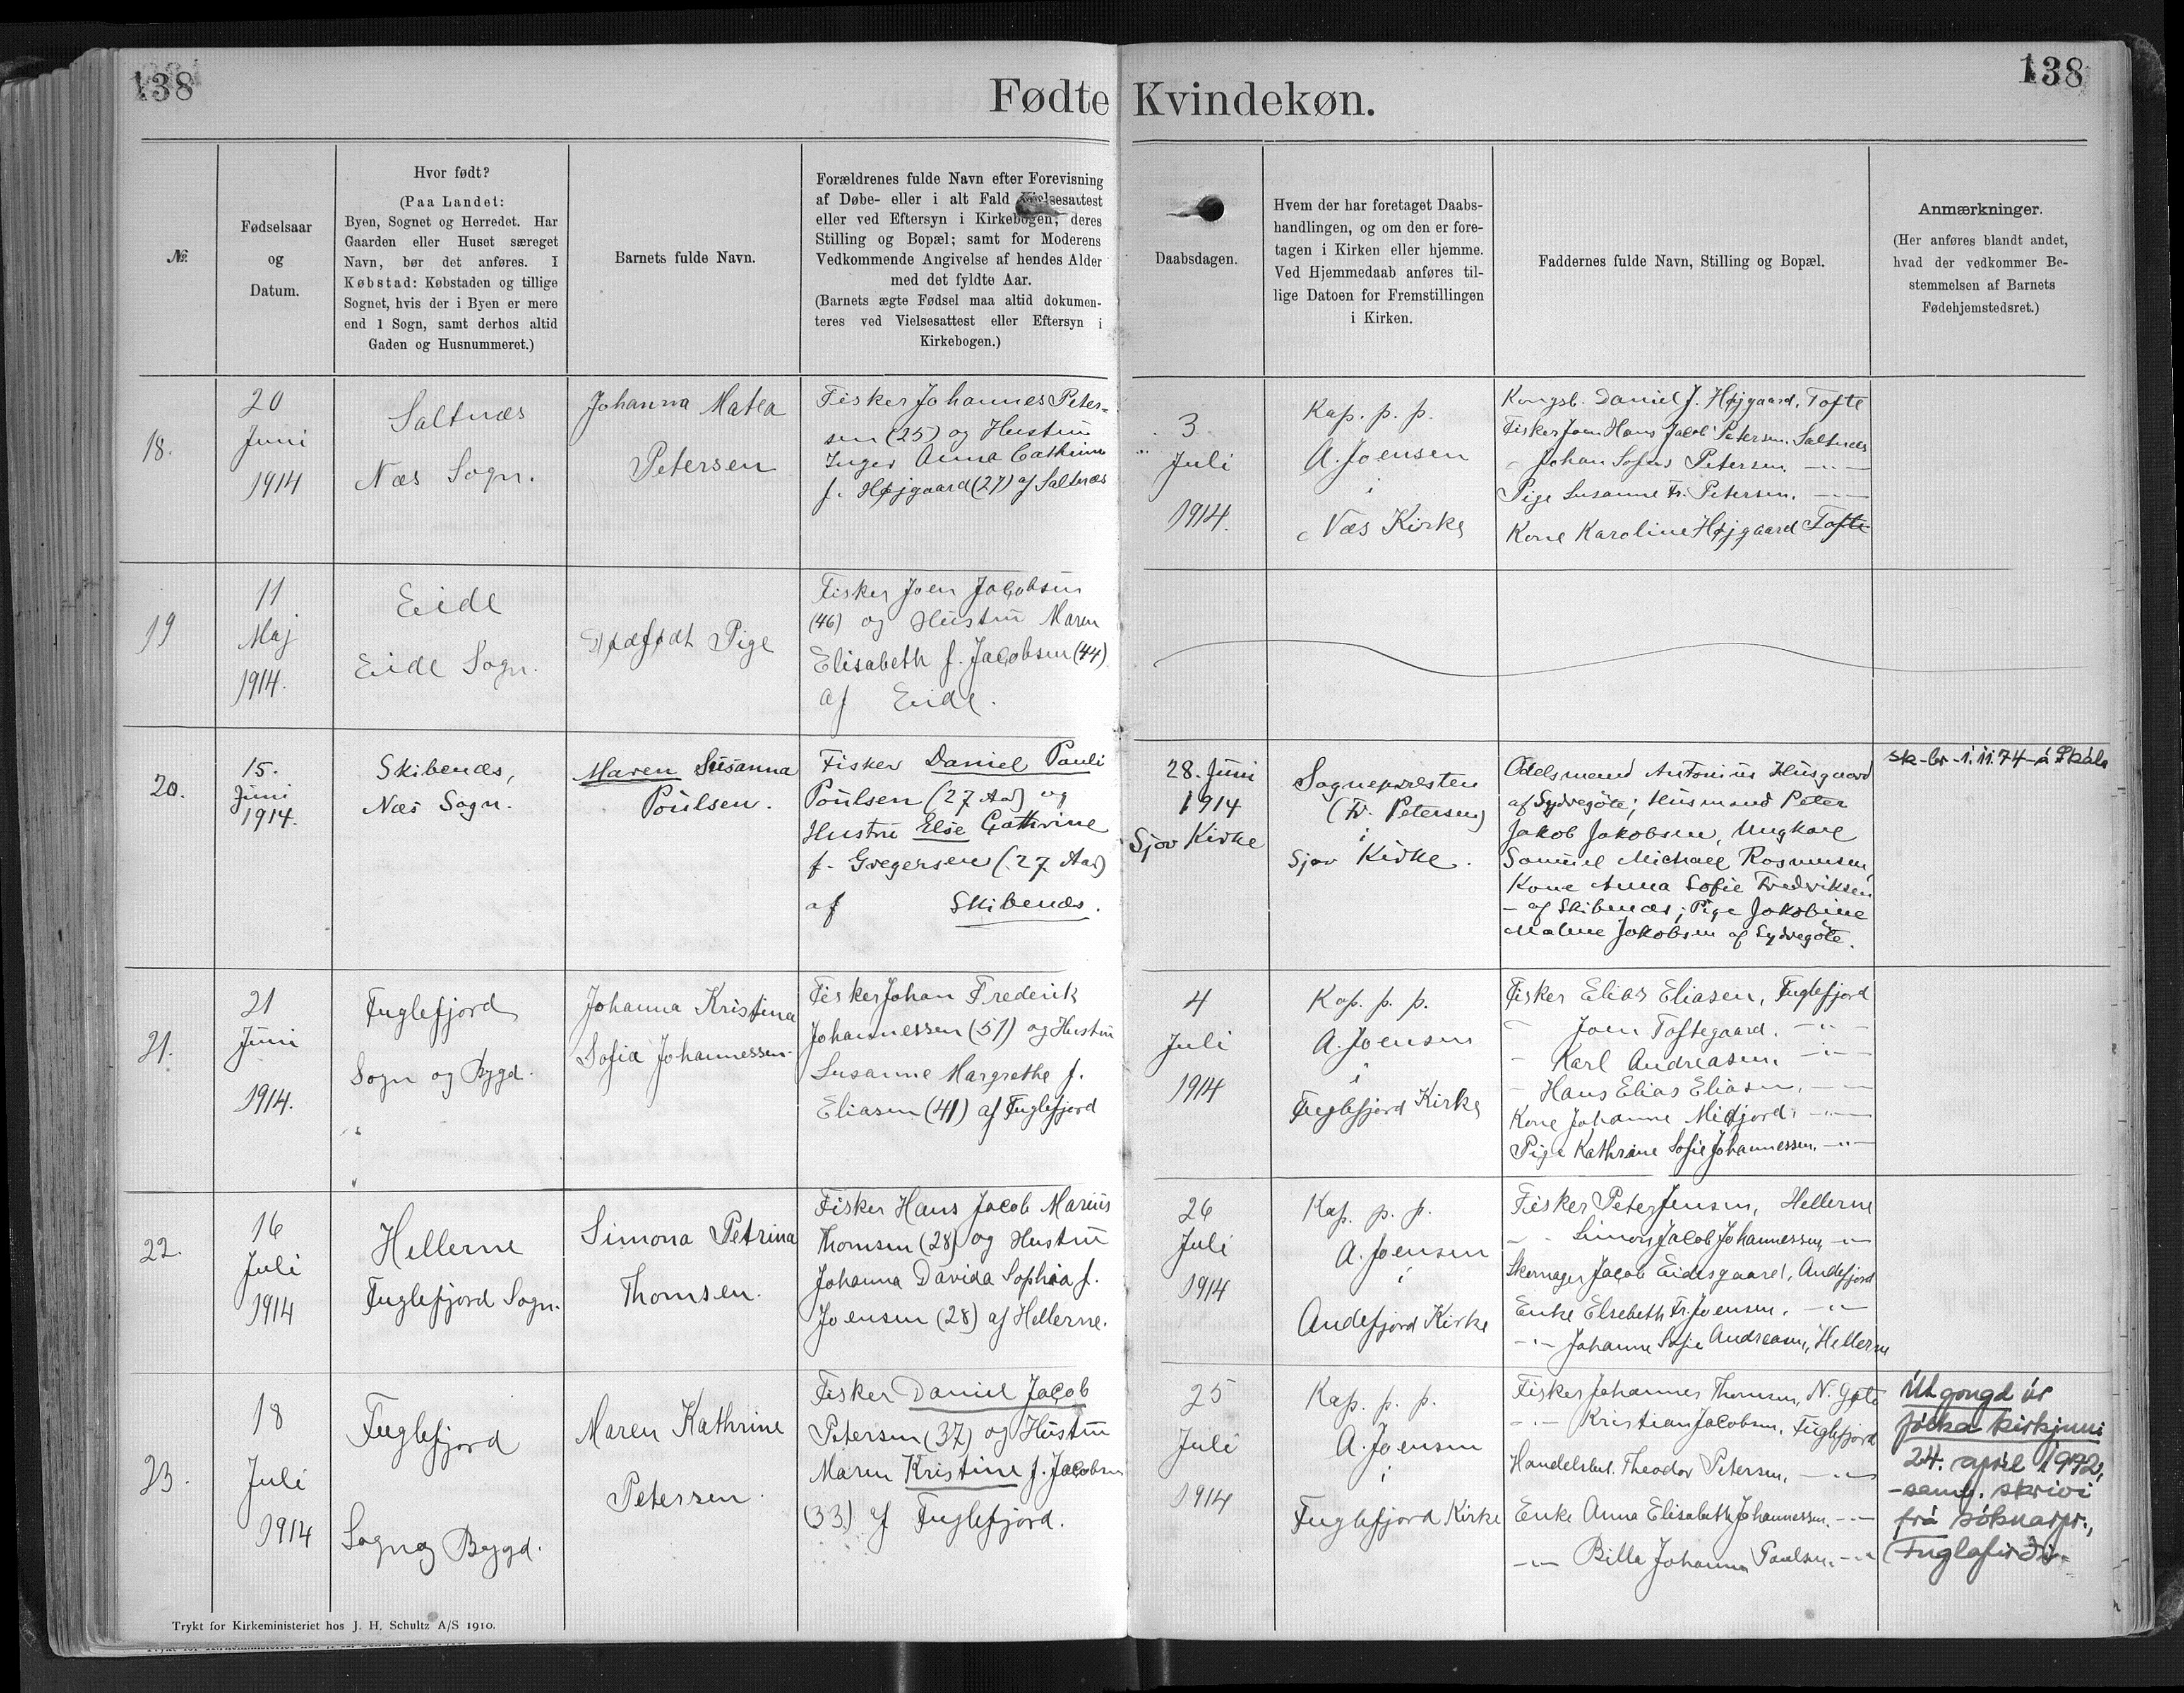 138
138
Fødte Kvindekøn.
№
Fødselsaar
og
Datum.
Hvor født?
(Paa Landet:
Byen, Sognet og Herredet. Har
Gaarden eller Huset særeget
Navn, bør det anføres. I
Købstad: Købstaden og tillige
Sognet, hvis der i Byen er mere
end 1 Sogn, samt derhos altid
Gaden og Husnummeret.)
Barnets fulde Navn.
Forældrenes fulde Navn efter Forevisning
af Døbe- eller i alt Fald Vielsesattest
eller ved Eftersyn i Kirkebogen; deres
Stilling og Bopæl; samt for Moderens
Vedkommende Angivelse af hendes Alder
med det fyldte Aar.
(Barnets ægte Fødsel maa altid dokumen-
teres ved Vielsesattest eller Eftersyn i
Kirkebogen.)
Daabsdagen.
Hvem der har foretaget Daabs-
handlingen, og om den er fore-
tagen i Kirken eller hjemme.
Ved Hjemmedaab anføres til-
lige Datoen for Fremstillingen
i Kirken.
Faddernes fulde Navn, Stilling og Bopæl.
Anmærkninger.
(Her anføres blandt andet,
hvad der vedkommer Be-
stemmelsen af Barnets
Fødehjemstedsret.)
18.
20
Juni
1914
Saltnæs
Næs Sogn.
Johanna Matea
Petersen
Fisker Johannes Peter=
sen (25) og Hustru
Inger Anna Cathrine
f. Højgaard (27) af Saltnæs
3
Juli
1914.
Kap. p. p.
A. Joensen
i
Næs Kirke
Kongsb. Daniel J. Højgaard, Tofte
Fisker Joen Hans Jacob Petersen, Saltnæs
" Johan Sofus Petersen —"—
Pige Susanne Fr. Petersen. —"—
Kone Karoline Højgaard Tofte
19
11
Maj
1914.
Eide
Eide Sogn.
Dødfødt Pige
Fisker Joen Jacobsen
(46) og Hustru Maren
Elisabeth f. Jacobsen (44)
af Eide.
20.
15.
Juni
1914.
Skibenæs,
Næs Sogn.
Maren Susanna
Poulsen.
Fisker Daniel Pauli
Poulsen (27 Aar) og
Hustru Else Cathrine
f. Gregersen (27 Aar)
af Skibenæs.
28. Juni
1914
Sjov Kirke
Sognepræsten
(Fr. Petersen)
i
Sjov Kirke.
Odelsmand Antonius Husgaard
af Sydregöte; Husmand Peter
Jakob Jakobsen, Ungkarl
Samuel Michael Rasmussen,
Kone Anna Sofie Fredriksen
- af Skibenæs; Pige Jakobine
Malene Jakobsen af Sydregöte.
sk-br-1.11.74-á Skála
21.
21
Juni
1914.
Fuglefjord
Sogn og Bygd.
Johanna Kristina
Sofia Johannessen.
Fisker Johan Frederik
Johannessen (51) og Hustru
Susanne Margrethe f.
Eliasen (41) af Fuglefjord
4
Juli
1914
Kap. p. p.
A. Joensen
i
Fuglefjord Kirke
Fisker Elias Eliasen, Fuglefjord
— Joen Toftegaard. —"—
— Karl Andreasen, —"—
— Hans Elias Eliasen, —"—
Kone Johanne Midjord. —"—
Pige Kathrine Sofie Johannessen. —"—
22.
16
Juli
1914
Hellerne
Fuglefjord Sogn.
Simona Petrina
Thomsen.
Fisker Hans Jacob Marius
Thomsen (28) og Hustru
Johanna Davida Sophia f.
Joensen (28) af Hellerne.
26
Juli
1914
Kap. p. p.
A. Joensen
i
Andefjord Kirke
Fisker Peter Jensen, Hellerne
— Simon Jacob Johannessen, —"—
Skomager Jacob Eidesgaard, Andefjord
Enke Elsebeth Fr. Joensen. —"—
—"— Johanne Sofie Andreasen, Hellerne
23.
18
Juli
1914
Fuglefjord
Sogn og Bygd.
Maren Kathrine
Petersen.
Fisker Daniel Jacob
Petersen (37) og Hustru
Maren Kristine f. Jacobsen
(33) af Fuglefjord.
25
Juli
1914
Kap. p. p.
A. Joensen
i
Fuglefjord Kirke
Fisker Johannes Thomsen, N. Gøte
—"— Kristian Jacobsen, Fuglefjord
Handelsbet. Theodor Petersen, —"—
Enke Anna Elisabeth Johannessen. —"—
—"— Billa Johanna Poulsen. —"—
Útgongd úr
fólka kirkjuni
24. apríl 1972,
-samb. skrivi
frá sóknarpr.,
Fuglafirði-
Trykt for Kirkeministeriet hos J. H. Schultz A/S 1910.